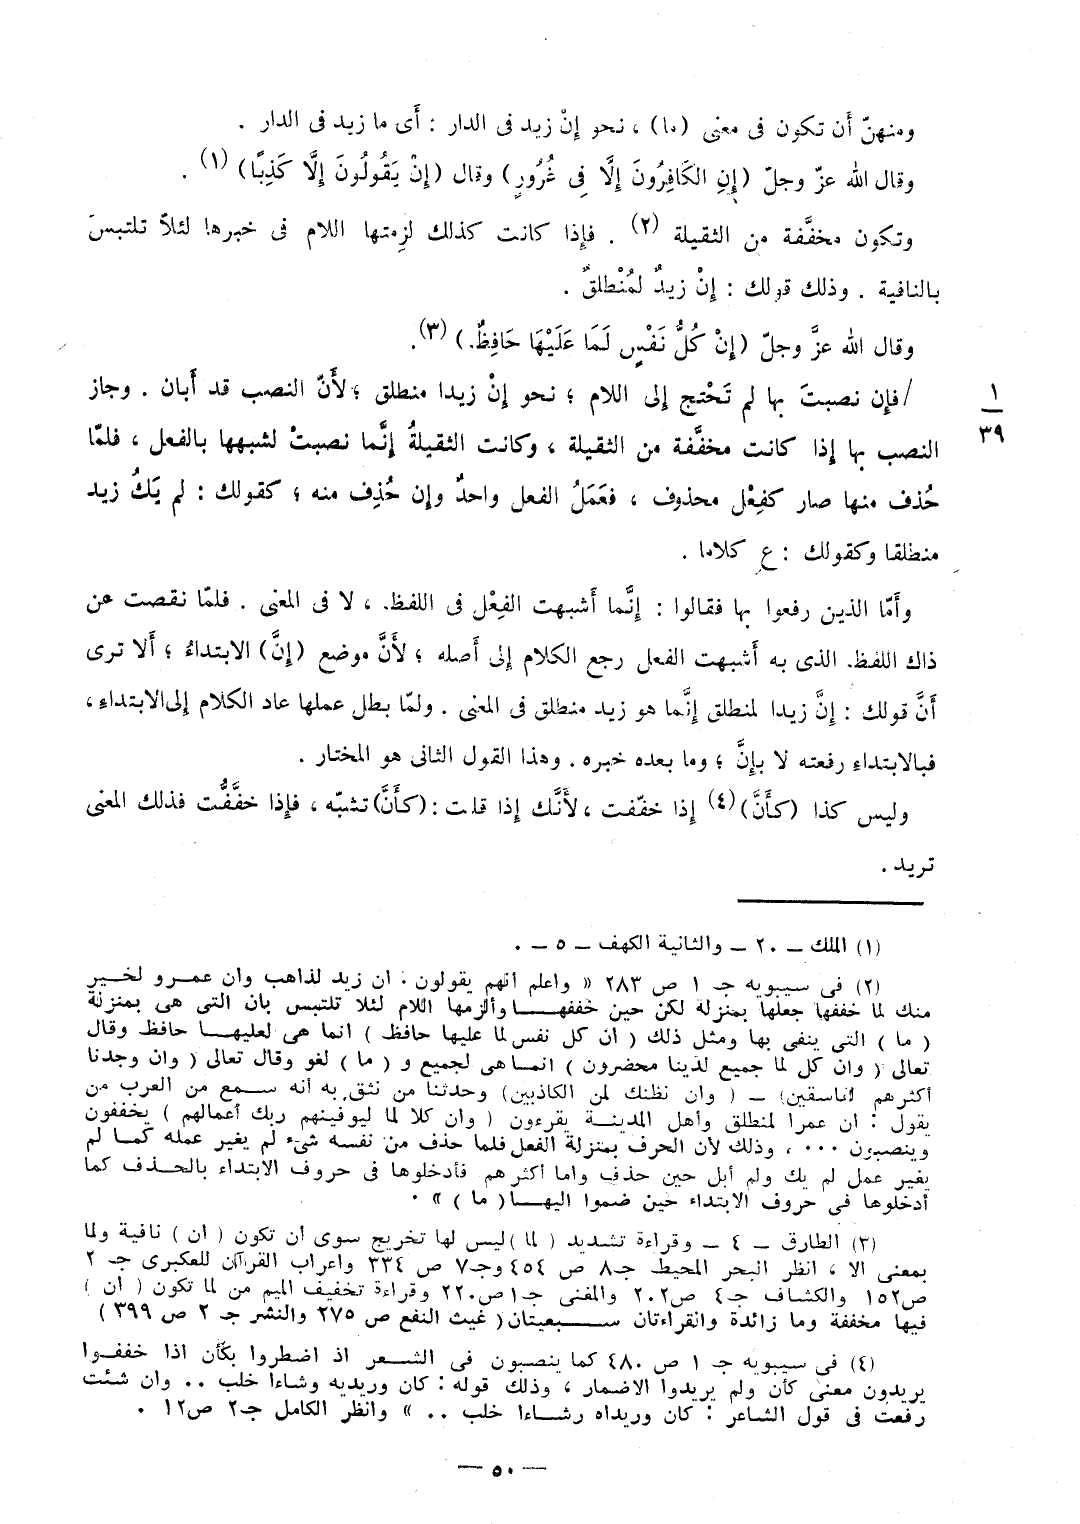 ومنهنّ أَن تكون فى معنى (ما) ، نحو إِنْ زيد فى الدار : أَى ما زيد فى الدار .
وقال الله عزّ وجلّ (إِنِ الْكَافِرُونَ إِلَّا فِى غُرُورٍ) وقال (إِنْ يَقُولُونَ إِلَّا كَذِبًا) (١) .
وتكون مخفَّفة من الثقيلة (٢) . فإِذا كانت كذلك لزمتها اللام فى خبرها لئلاّ تلتبسَ
بالنافية . وذلك قولك : إِنْ زيدٌ لمُنْطلقٌ .
وقال الله عزَّ وجلّ (إِنْ كُلُّ نَفْسٍ لَمَا عَلَيْهَا حَافِظٌ.) (٣).
/ فإِن نصبتَ بها لم تَحْتج إِلى اللام ؛ نحو إِنْ زيدا منطلق ؛ لأَنّ النصب قد أَبان . وجاز
١
٣٩
النصب بها إِذا كانت مخفَّفة من الثقيلة ، وكانت الثقيلةُ إِنَّما نصبتْ لشبهها بالفعل ، فلمّا
حُذف منها صار كفِعْل محذوف ، فعَمَلُ الفعل واحدٌ وإِن حُذِف منه ؛ كقولك : لم يَكُ زيد
منطلقا وكقولك : عِ كلاما .
وأَمّا الذين رفعوا بها فقالوا : إِنَّما أَشبهت الفِعْل فى اللفظ. ، لا فى المعنى . فلمّا نقصت عن
ذاك اللفظ. الذى به أَشبهت الفعل رجع الكلام إِلى أَصله ؛ لأَنَّ موضع (إِنَّ) الابتداءُ ؛ أَلا ترى
أَنَّ قولك : إِنَّ زيدا لمنطلق إِنَّما هو زيد منطلق فى المعنى . ولمّا بطل عملها عاد الكلام إِلى الابتداءِ ،
فبالابتداءِ رفعته لا بإِنَّ ؛ وما بعده خبره . وهذا القول الثانى هو المختار .
وليس كذا (كأَنَّ) (٤) إِذا خفّفت ، لأَنَّك إِذا قلت : (كأَنَّ) تشبّه ، فإِذا خفَّفْت فذلك المعنى
تريد .
(١) الملك ــ ٢٠ ــ والثانية الكهف ــ ٥ ــ .
(٢) فى سيبويه جـ ١ ص ٢٨٣ « واعلم انهم يقولون . ان زيد لذاهب وان عمرو لخير
منك لما خففها جعلها بمنزلة لكن حين خففها والزمها اللام لئلا تلتبس بان التى هى بمنزلة
( ما ) التى ينفى بها ومثل ذلك ( ان كل نفس لما عليها حافظ ) انما هى لعليها حافظ وقال
تعالى ( وان كل لما جميع لدينا محضرون ) انما هى لجميع و ( ما ) لغو وقال تعالى ( وان وجدنا
أكثرهم لفاسقين) ــ ( وان نظنك لمن الكاذبين) وحدثنا من نثق به أنه سمع من العرب من
يقول : ان عمرا لمنطلق وأهل المدينة يقرءون ( وان كلا لما ليوفينهم ربك أعمالهم ) يخففون
وينصبون ٠٠٠ ، وذلك لأن الحرف بمنزلة الفعل فلما حذف من نفسه شىء لم يغير عمله كما لم
يغير عمل لم يك ولم أبل حين حذف واما أكثر هم فأدخلوها فى حروف الابتداء بالحذف كما
أدخلوها فى حروف الابتداء حين ضموا اليها ( ما ) » ٠
(٣) الطارق ــ ٤ ــ وقراءة تشديد ( لما ) ليس لها تخريج سوى ان تكون ( ان ) نافية ولما
بمعنى الا ، انظر البحر المحيط جـ٨ ص ٤٥٤ وجـ٧ ص ٣٣٤ واعراب القرآن للعكبرى جـ ٢
ص١٥٢ والكشاف جـ٤ ص٢٠٢ والمغنى جـ١ ص٢٢٠ وقراءة تخفيف الميم من لما تكون ( ان )
فيها مخففة وما زائدة والقراءتان سبعيتان ( غيث النفع ص ٢٧٥ والنشر جـ ٢ ص ٣٩٩ )
(٤) فى سيبويه جـ ١ ص ٤٨٠ كما ينصبون فى الشعر اذ اضطروا بكأن اذا خففوا
يريدون معنى كأن ولم يريدوا الاضمار ، وذلك قوله : كان وريديه وشاءا خلب .. وان شئت
رفعت فى قول الشاعر : كان وريداه رشاءا خلب .. » وانظر الكامل جـ٢ ص١٢ .
— ٥٠ —